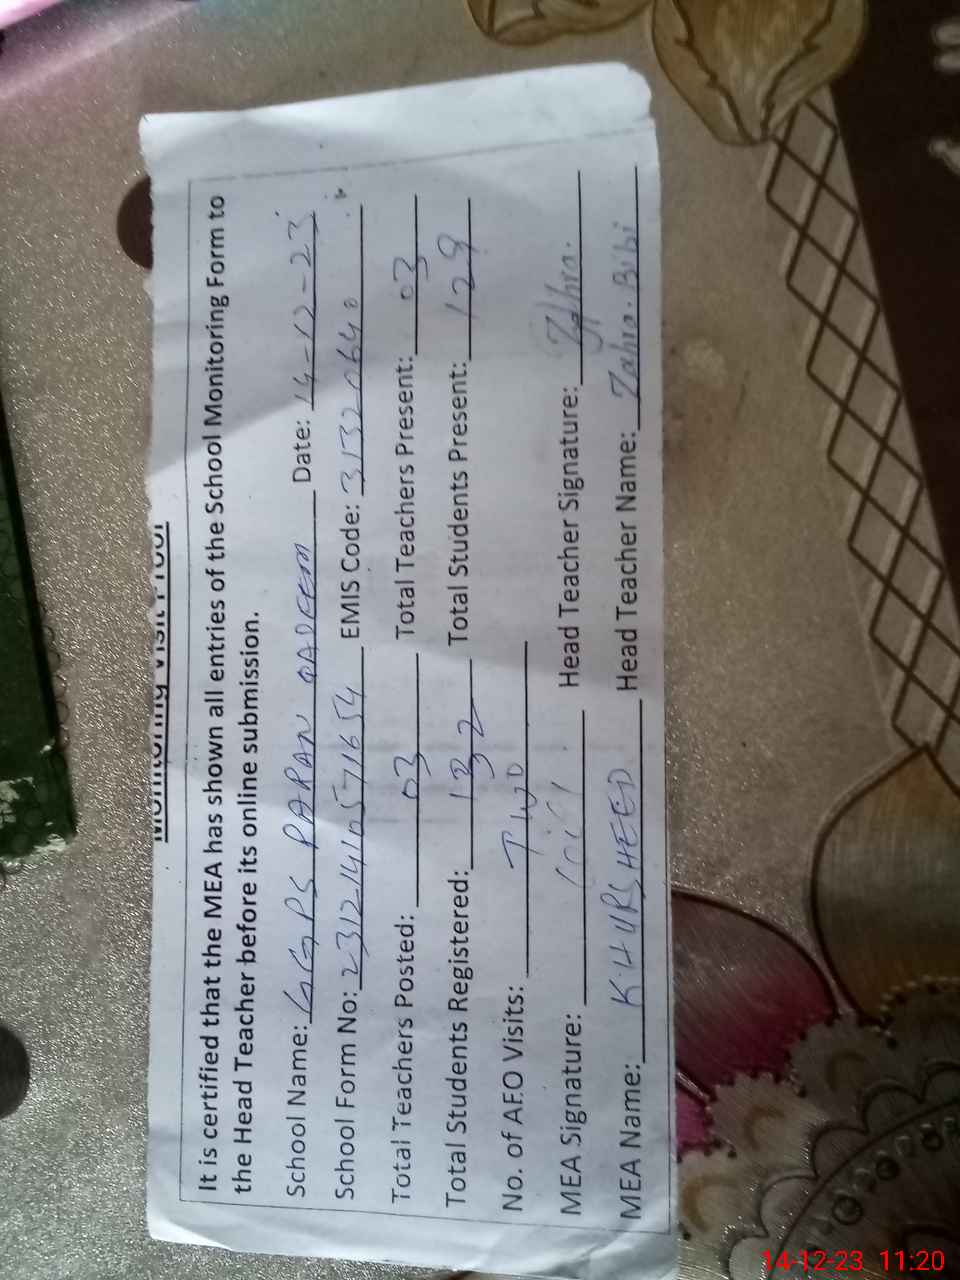 Monitoring Visit Proof
It is certified that the MEA has shown all entries of the School Monitoring Form to
the Head Teacher before its online submission.
School Name: GGPS PARAN QADEEM Date: 14-12-23
School Form No: 231214105 71654 EMIS Code: 31320640
Total Teachers Posted: 03 Total Teachers Present: 03
Total Students Registered: 132 Total Students Present: 129
No. of AEO Visits: TWO
MEA Signature: Head Teacher Signature: Zahra.
MEA Name: KHURSHEED Head Teacher Name: Zahra. Bibi
14-12-23 11:20